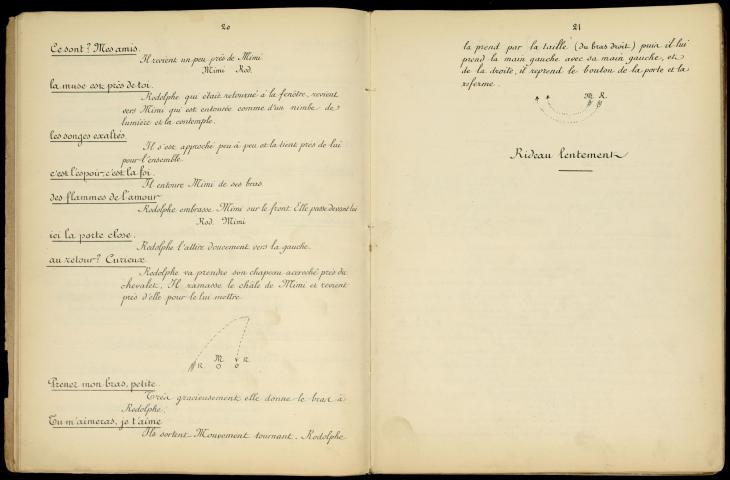 20
Ce sont? Mes amis.
Il revient un peu près de Mimi
Mimi Rod.
la muse est près de toi.
Rodolphe qui était retourné à la fenêtre, revient
vers Mimi qui est entourée comme d'un nimbe de
lumière et la contemple.
les songes exaltés.
Il s'est approché peu à peu et la tient près de lui
pour l'ensemble.
c'est l'espoir, c'est la foi.
Il entoure Mimi de ses bras.
des flammes de l'amour
Rodolphe embrasse Mimi sur le front. Elle passe devant lui
Rod. Mimi
ici la porte close.
Rodolphe l'attire doucement vers la gauche.
au retour? Curieux
Rodolphe va prendre son chapeau accroché près du
chevalet. Il ramasse le châle de Mimi et revient
près d'elle pour le lui mettre
R M R
Prenez mon bras, petite.
Très gracieusement elle donne le bras à
Rodolphe.
Tu m'aimeras, je t'aime
Ils sortent Mouvement tournant. Rodolphe
21
la prend par la taille (du bras droit) puis il lui
prend la main gauche avec sa main gauche, et
de la droite, il reprend le bouton de la porte et la
referme.
M R.
Rideau lentement